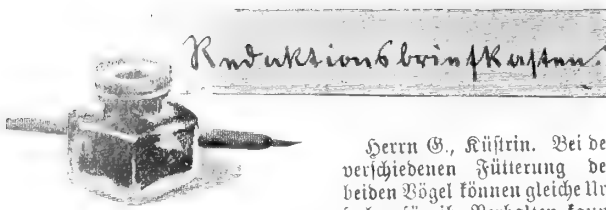 Redaktionsbriefkasten.
Herrn G., Küstrin. Bei de
verschiedenen Fütterung de
beiden Vögel können gleiche Ur